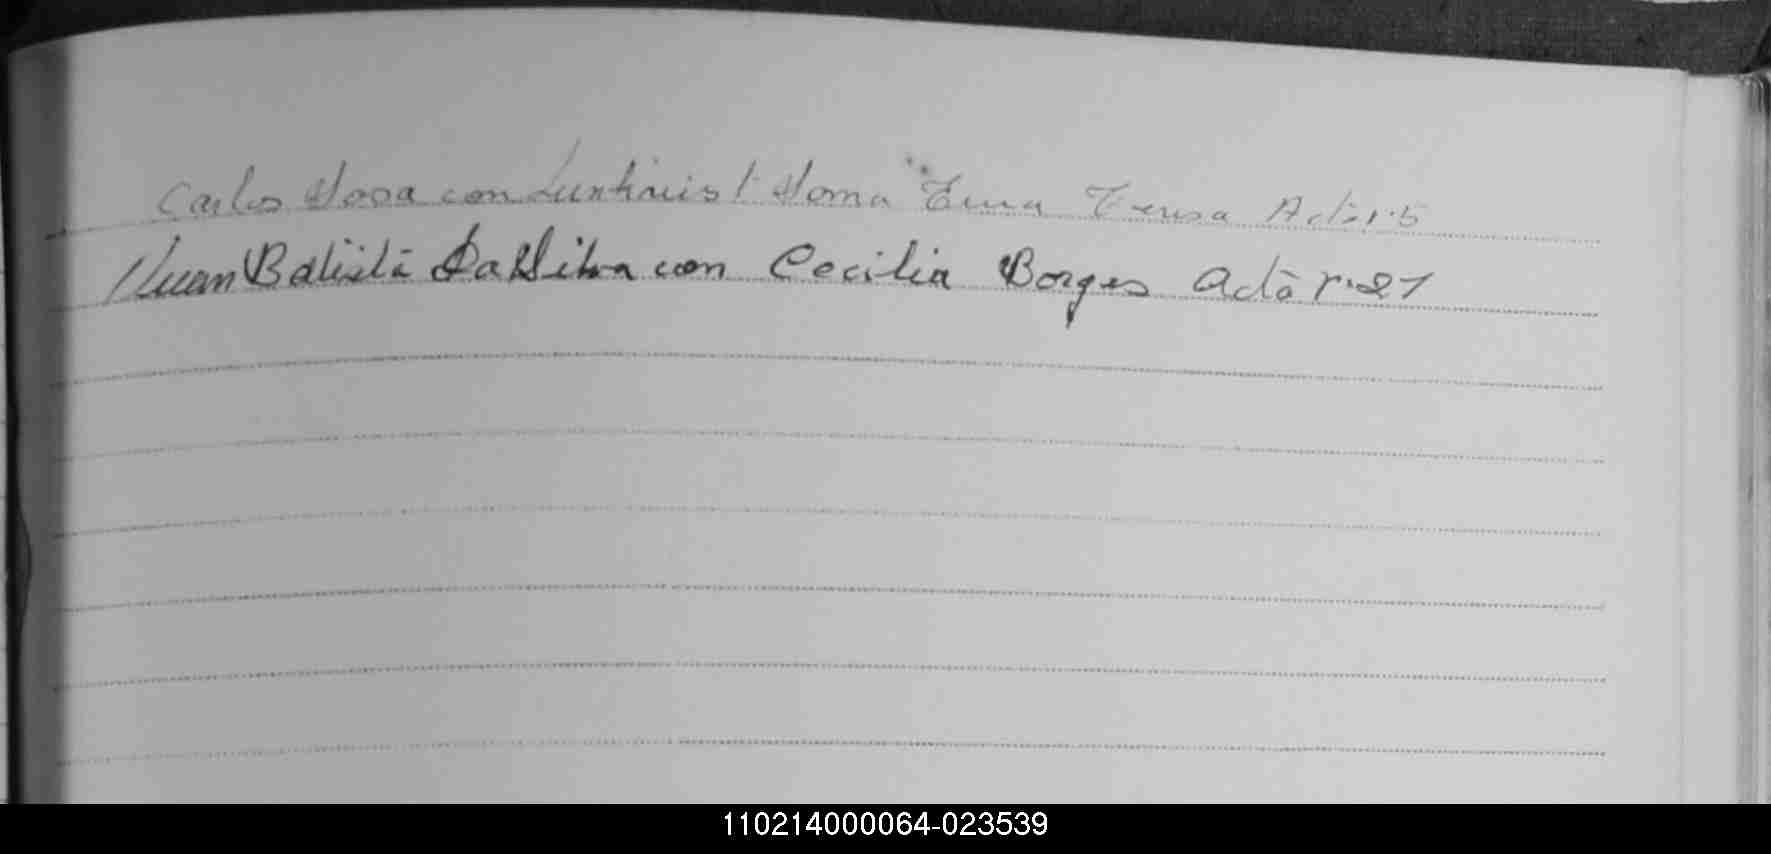 Carlos Sosa con Teresa Acta nº 5
Juan Batista Da Silva con Cecilia Borges Acta nº 21
110214000064-023539